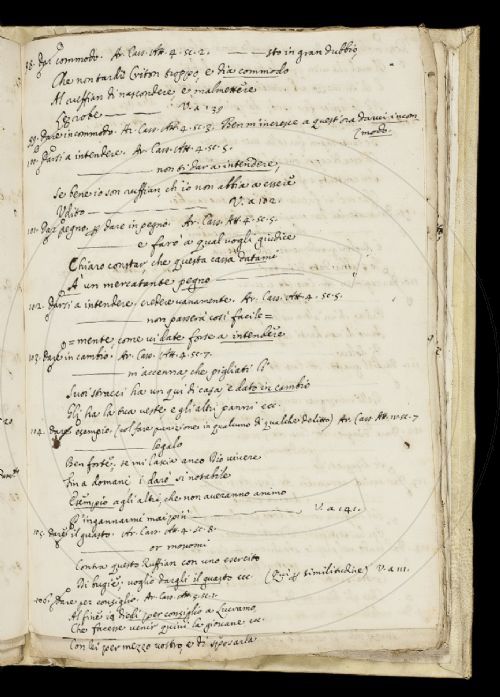 98. Dar commodo. Ar. Cass. Att. 4. sc. 2. ——— sto in gran dubbio,
Che non tardi Criton troppo, e dia commodo
Al ruffian di nascondere e malmettere
Le robe ——— V. a 139
99. Dare incommodo. Ar. Cass. Att. 4. sc. 3. Ben m'incresce a quest'ora darvi incom
modo.
100. Darsi a intendere. Ar. Cass. Att. 4. sc. 5.
——— non ti dar a intendere,
Se bene io son ruffian, ch'io non abbia a essere
Udito ——— V. a 102.
101. Dar pegno, p dare in pegno. Ar. Cass. Att. 4. sc. 5.
e farò a qual vogli giudice
Chiaro constar, che questa cassa datami
A un mercatante pegno ———
102. Darsi a intendere, credere vanamente. Ar. Cass. Att. 4. sc. 5.
——— non passerà così facile=
= mente, come vi date forse a intendere
103. Dare in cambio. Ar. Cass. Att. 4. sc. 7.
——— m'accenna, che pigliati li
Suoi stracci ha un qui di casa, e dato in cambio
Gli ha la tua veste, e gli altri panni ecc.
104. Dare esempio. (col fare punizione in qualcuno di qualche delitto) Ar. Cass. Att. 4. sc. 7
legalo
Ben forte, se mi lascia anco Dio vivere
Fin a domani i darò sì notabile
Esempio agli altri, che non averanno animo
D'ingannarmi mai più ——— V. a 141.
105. Dare il guasto. Ar. Cass. Att. 4. sc. 8.
——— or movomi
Contra questo Ruffian con uno esercito
Di bugie; voglio dargli il guasto ecc. (Qui p similitudine) V. a 111.
106. Dare per consiglio. Ar. Cass. Att. 5. sc. 1.
Al fine io diedi per consiglio a Lucramo,
Che facesse venir quivi la giovane ec.
Con lei per mezzo vostro, e di sposarla